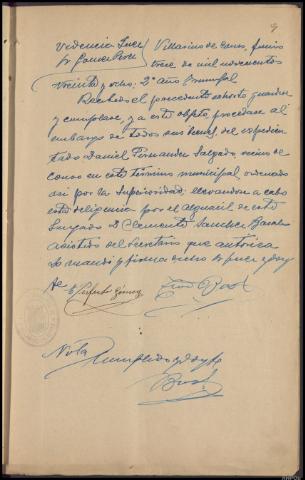 Providencia Juez
Sr Gomez Perez
Villarino de Conso, Junio
trece de mil novecientos
treinta y ocho; 2º año triunfal
Recibido el precedente exhorto guardese
y cumplase, y a este objeto, procedase al
embargo de todos sus bienes, del expedien
tado Daniel Fernandez Salgado, vecino de
Conso en este término municipal ordenado
asi por la Superioridad, llevandose a cabo
esta diligencia por el alguacil de este
Juzgado D Clemente
asistido del Secretario que autoriza
Lo mando y firma dicho Sr Juez y doy
fe
Perfecto Gómez
Nota
Cumplido y doy fe